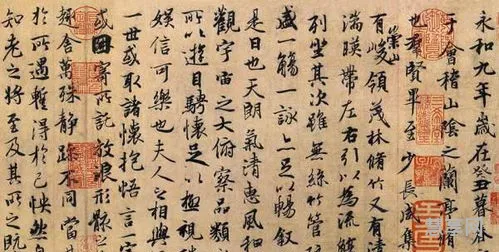 永和九年歲在癸丑暮
于會稽山陰之蘭亭
也羣賢畢至少長咸集
崇山
有峻領茂林脩竹又有清
湍暎帶左右引以為流觴
列坐其次雖無絲竹管弦
盛一觴一詠亦足以暢叙
是日也天朗氣清惠風和
觀宇宙之大俯察品類
所以遊目騁懷足以極視聽
娛信可樂也夫人之相與
一世或取諸懷抱悟言
或因寄所託放浪形骸之
趣舍萬殊靜躁不同當
於所遇暫得於己怏然自
知老之將至及其所之既